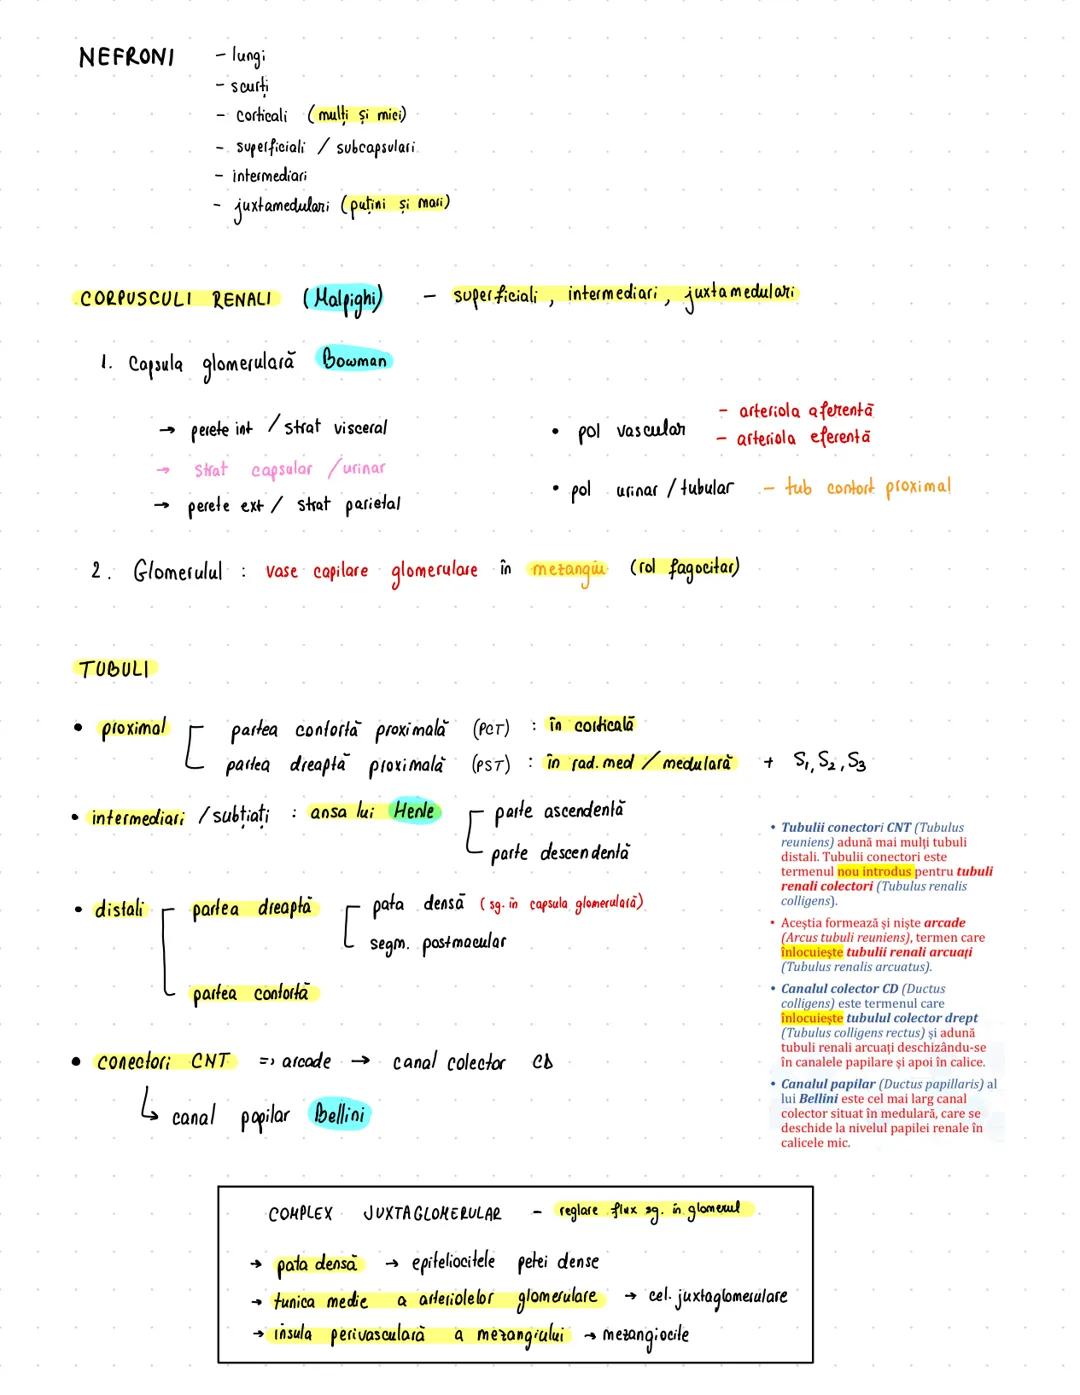 NEFRONI - lungi
- scurți
- corticali (mulți și mici)
- superficiali / subcapsulari
- intermediari
- juxtamedulari (puțini și mari)
CORPUSCULI RENALI (Malpighi) - superficiali, intermediari, juxtamedulari
1. Capsula glomerulară Bowman
→ perete int / strat visceral
→ strat capsular / urinar
→ perete ext / strat parietal
• pol vascular - arteriola aferentă
- arteriola eferentă
• pol urinar / tubular - tub contort proximal
2. Glomerulul : vase capilare glomerulare în mezangiu (rol fagocitar)
TUBULI
• proximal partea contortă proximală (PCT) : în corticală
partea dreaptă proximală (PST) : în rad. med / medulară + S1, S2, S3
• intermediari / subțiați : ansa lui Henle parte ascendentă
parte descendentă
• distali partea dreaptă pata densă (sg. în capsula glomerulară)
segm. postmacular
partea contortă
• conectori CNT => arcade → canal colector CD
↳ canal papilar Bellini
• Tubulii conectori CNT (Tubulus
reuniens) adună mai mulți tubuli
distali. Tubulii conectori este
termenul nou introdus pentru tubuli
renali colectori (Tubulus renalis
colligens).
• Aceștia formează și niște arcade
(Arcus tubuli reuniens), termen care
înlocuiește tubulii renali arcuați
(Tubulus renalis arcuatus).
• Canalul colector CD (Ductus
colligens) este termenul care
înlocuiește tubulul colector drept
(Tubulus colligens rectus) și adună
tubuli renali arcuați deschizându-se
în canalele papilare și apoi în calice.
• Canalul papilar (Ductus papillaris) al
lui Bellini este cel mai larg canal
colector situat în medulară, care se
deschide la nivelul papilei renale în
calicele mic.
COMPLEX JUXTAGLOMERULAR - reglare flux sg. în glomerul
→ pata densă → epiteliocitele petei dense
→ tunica medie a arteriolelor glomerulare → cel. juxtaglomerulare
→ insula perivasculară a mezangiului → mezangiocite